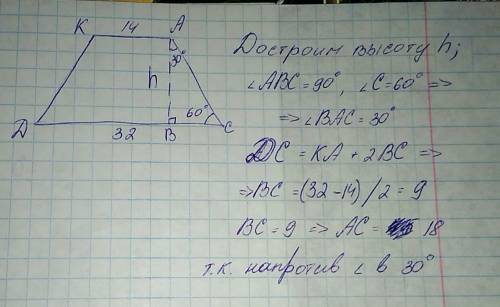 K 14 A
30°
h
60°
D 32 B C
Достроим высоту h;
∠ABC = 90°, ∠C = 60° =>
=> ∠BAC = 30°
DC = KA + 2BC =>
=> BC = (32 - 14) / 2 = 9
BC = 9 => AC = 18
т.к. напротив ∠ в 30°